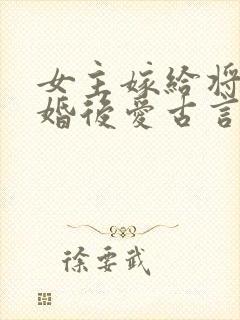 女主嫁給將
婚後愛古言
徐要武